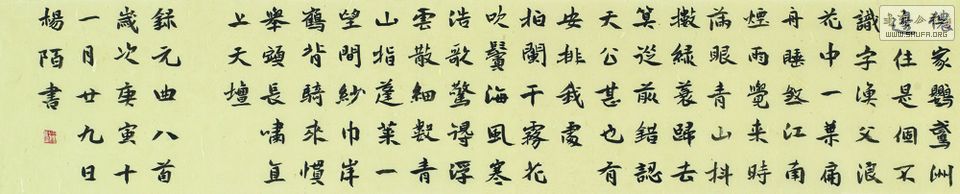 儂家鸚鵡洲
邊住是個不
識字漁父浪
花中一葉扁
舟睡煞江南
煙雨覺來時
滿眼青山抖
擻綠蓑歸去
算從前錯認
天公甚也有
安排我處
拍闌干霧花
吹鬢海風寒
浩歌驚得浮
雲散細數青
山指蓬萊一
望間紗巾岸
鶴背騎來慣
舉頭長嘯直
上天壇
錄元曲八首
歲次庚寅十
一月廿九日
楊陌書
WWW.SHUFA.ORG